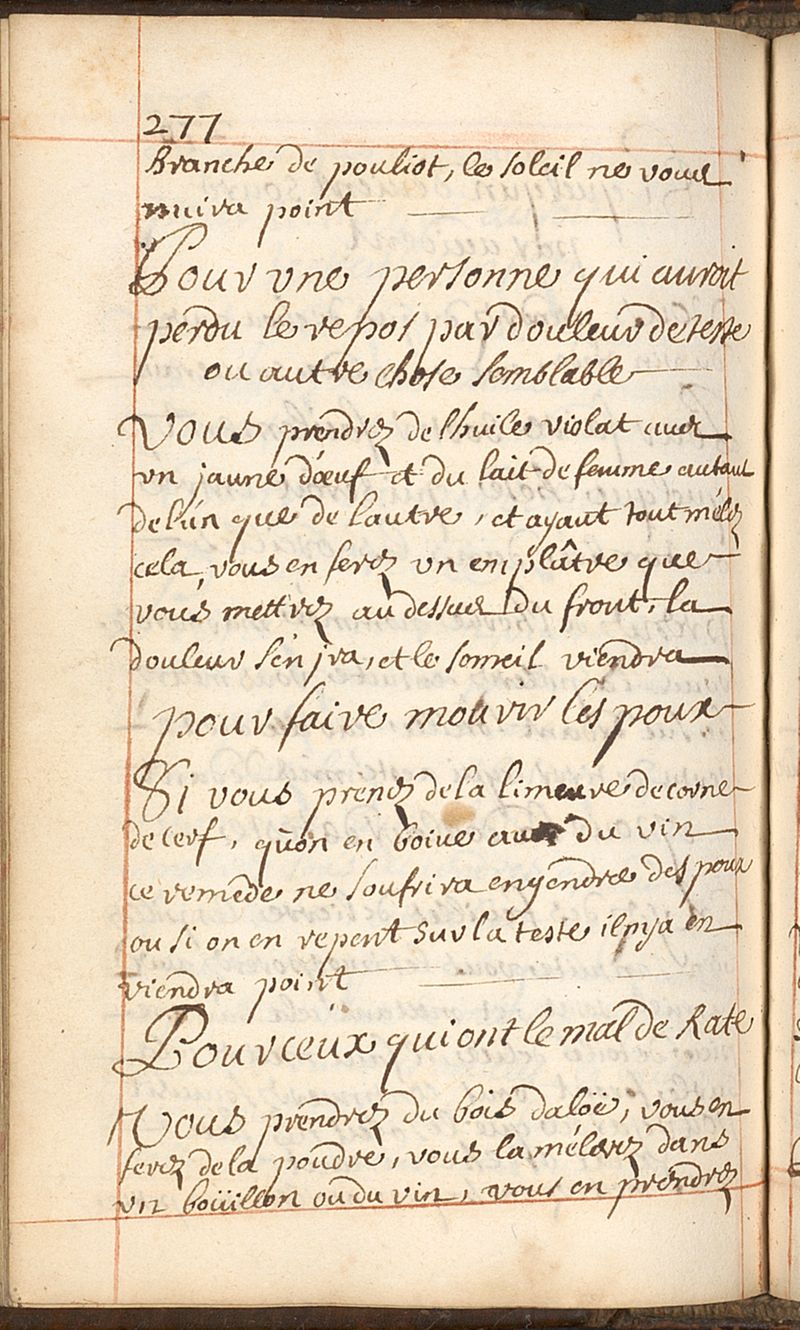 277
Branche de pouliot, le soleil ne vous
nuira point
Pour une personne qui auroit
perdu le repos par douleur de teste
ou autre chose semblable
Vous prendrez de lhuile violat avec
un jaune d'œuf et du lait de femme autant
de l'un que de lautre, et ayant tout mélez
cela, vous en ferez un emplâtre que
vous mettrez au dessus du front, la
douleur s'en jra, et le someil viendra
pour faire mourir les poux
Si vous prenez de la limeure de corne
de cerf, qu'on en boive avec du vin
ce remede ne soufrira engendrer des poux
ou si on en repent sur la teste il n'ja en
viendra point
Pour ceux qui ont le mal de Rate
Vous prendrez du bois daloë, vous en
ferez de la poudre, vous la mélerez dans
un boüillon ou du vin, vous en prendrez